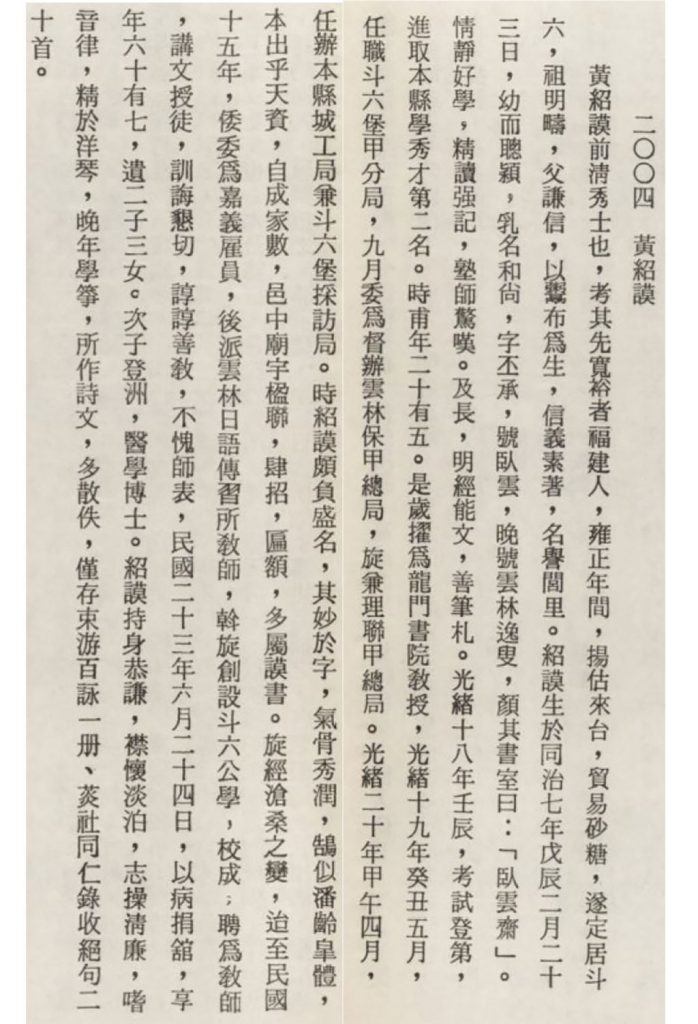 二〇〇四　黃紹謨
黃紹謨前清秀士也，考其先寬裕者福建人，雍正年間，揚估來台，貿易砂糖，遂定居斗
六，祖明疇，父謙信，以鬻布爲生，信義素著，名譽閭里。紹謨生於同治七年戊辰二月二十
三日，幼而聰穎，乳名和尙，字丕承，號臥雲，晚號雲林逸叟，顏其書室曰：「臥雲齋」。
情靜好學，精讀强記，塾師驚嘆。及長，明經能文，善筆札。光緒十八年壬辰，考試登第，
進取本縣學秀才第二名。時甫年二十有五。是歲擢爲龍門書院敎授，光緒十九年癸丑五月，
任職斗六堡甲分局，九月委爲督辦雲林保甲總局，旋兼理聯甲總局。光緒二十年甲午四月，
任辦本縣城工局兼斗六堡採訪局。時紹謨頗負盛名，其妙於字，氣骨秀潤，鵠似潘齡皐體，
本出乎天資，自成家數，邑中廟宇楹聯，肆招，匾額，多屬謨書。旋經滄桑之變，迨至民國
十五年，倭委爲嘉義雇員，後派雲林日語傳習所敎師，斡旋創設斗六公學，校成；聘爲敎師
，講文授徒，訓誨懇切，諄諄善敎，不愧師表，民國二十三年六月二十四日，以病捐舘，享
年六十有七，遺二子三女。次子登洲，醫學博士。紹謨持身恭謙，襟懷淡泊，志操淸廉，嗜
音律，精於洋琴，晚年學箏，所作詩文，多散佚，僅存東游百詠一册、菼社同仁錄收絕句二
十首。